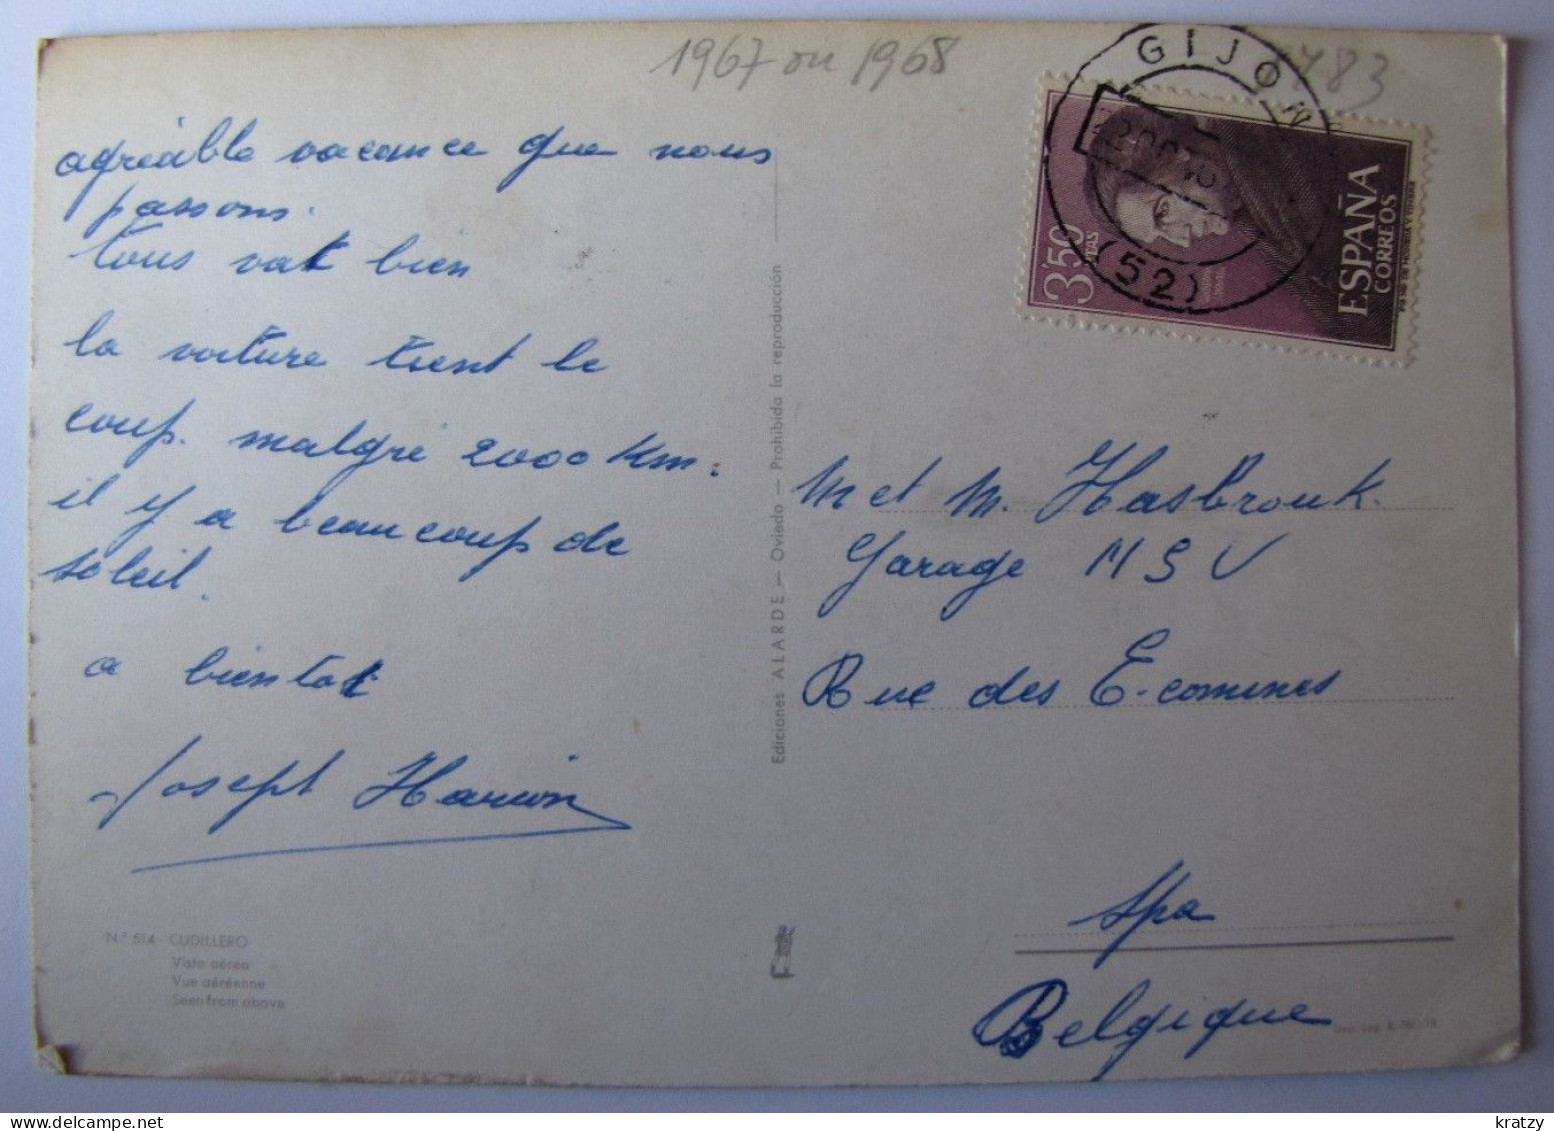 1967 ou 1968
agréable vacance que nous
passons.
tous vat bien
la voiture tient le
coup. malgré 2000 Km.
il y a beaucoup de
soleil.
a bientot
Joseph
N.° 514 - CUDILLERO
Vista aérea
Vue aéréenne
Seen from above
Ediciones ALARDE — Oviedo — Prohibida la reproducción
GIJON
(52)
3'50 PTAS
ESPAÑA
CORREOS
M et M. Hasbrouk.
Garage MSV
Rue des E-comines
Spa
Belgique
Kratzy